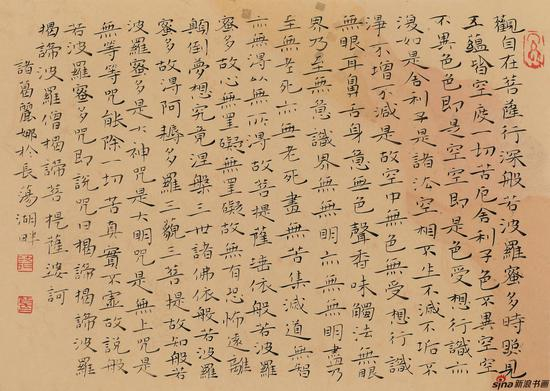 觀自在菩薩行深般若波羅蜜多時照見
五蘊皆空度一切苦厄舍利子色不異空空
不異色色即是空空即是色受想行識亦
復如是舍利子是諸法空相不生不滅不垢不
淨不增不減是故空中無色無受想行識
無眼耳鼻舌身意無色聲香味觸法無眼
界乃至無意識界無無明亦無無明盡乃
至無老死亦無老死盡無苦集滅道無智
亦無得以無所得故菩提薩埵依般若波羅
蜜多故心無罣礙無罣礙故無有恐怖遠離
顛倒夢想究竟涅槃三世諸佛依般若波羅
蜜多故得阿耨多羅三藐三菩提故知般若
波羅蜜多是大神咒是大明咒是無上咒是
無等等咒能除一切苦真實不虛故說般
若波羅蜜多咒即說咒曰揭諦揭諦波羅
揭諦波羅僧揭諦菩提薩婆訶
諸葛麗娜於長蕩湖畔
sina 新浪书画